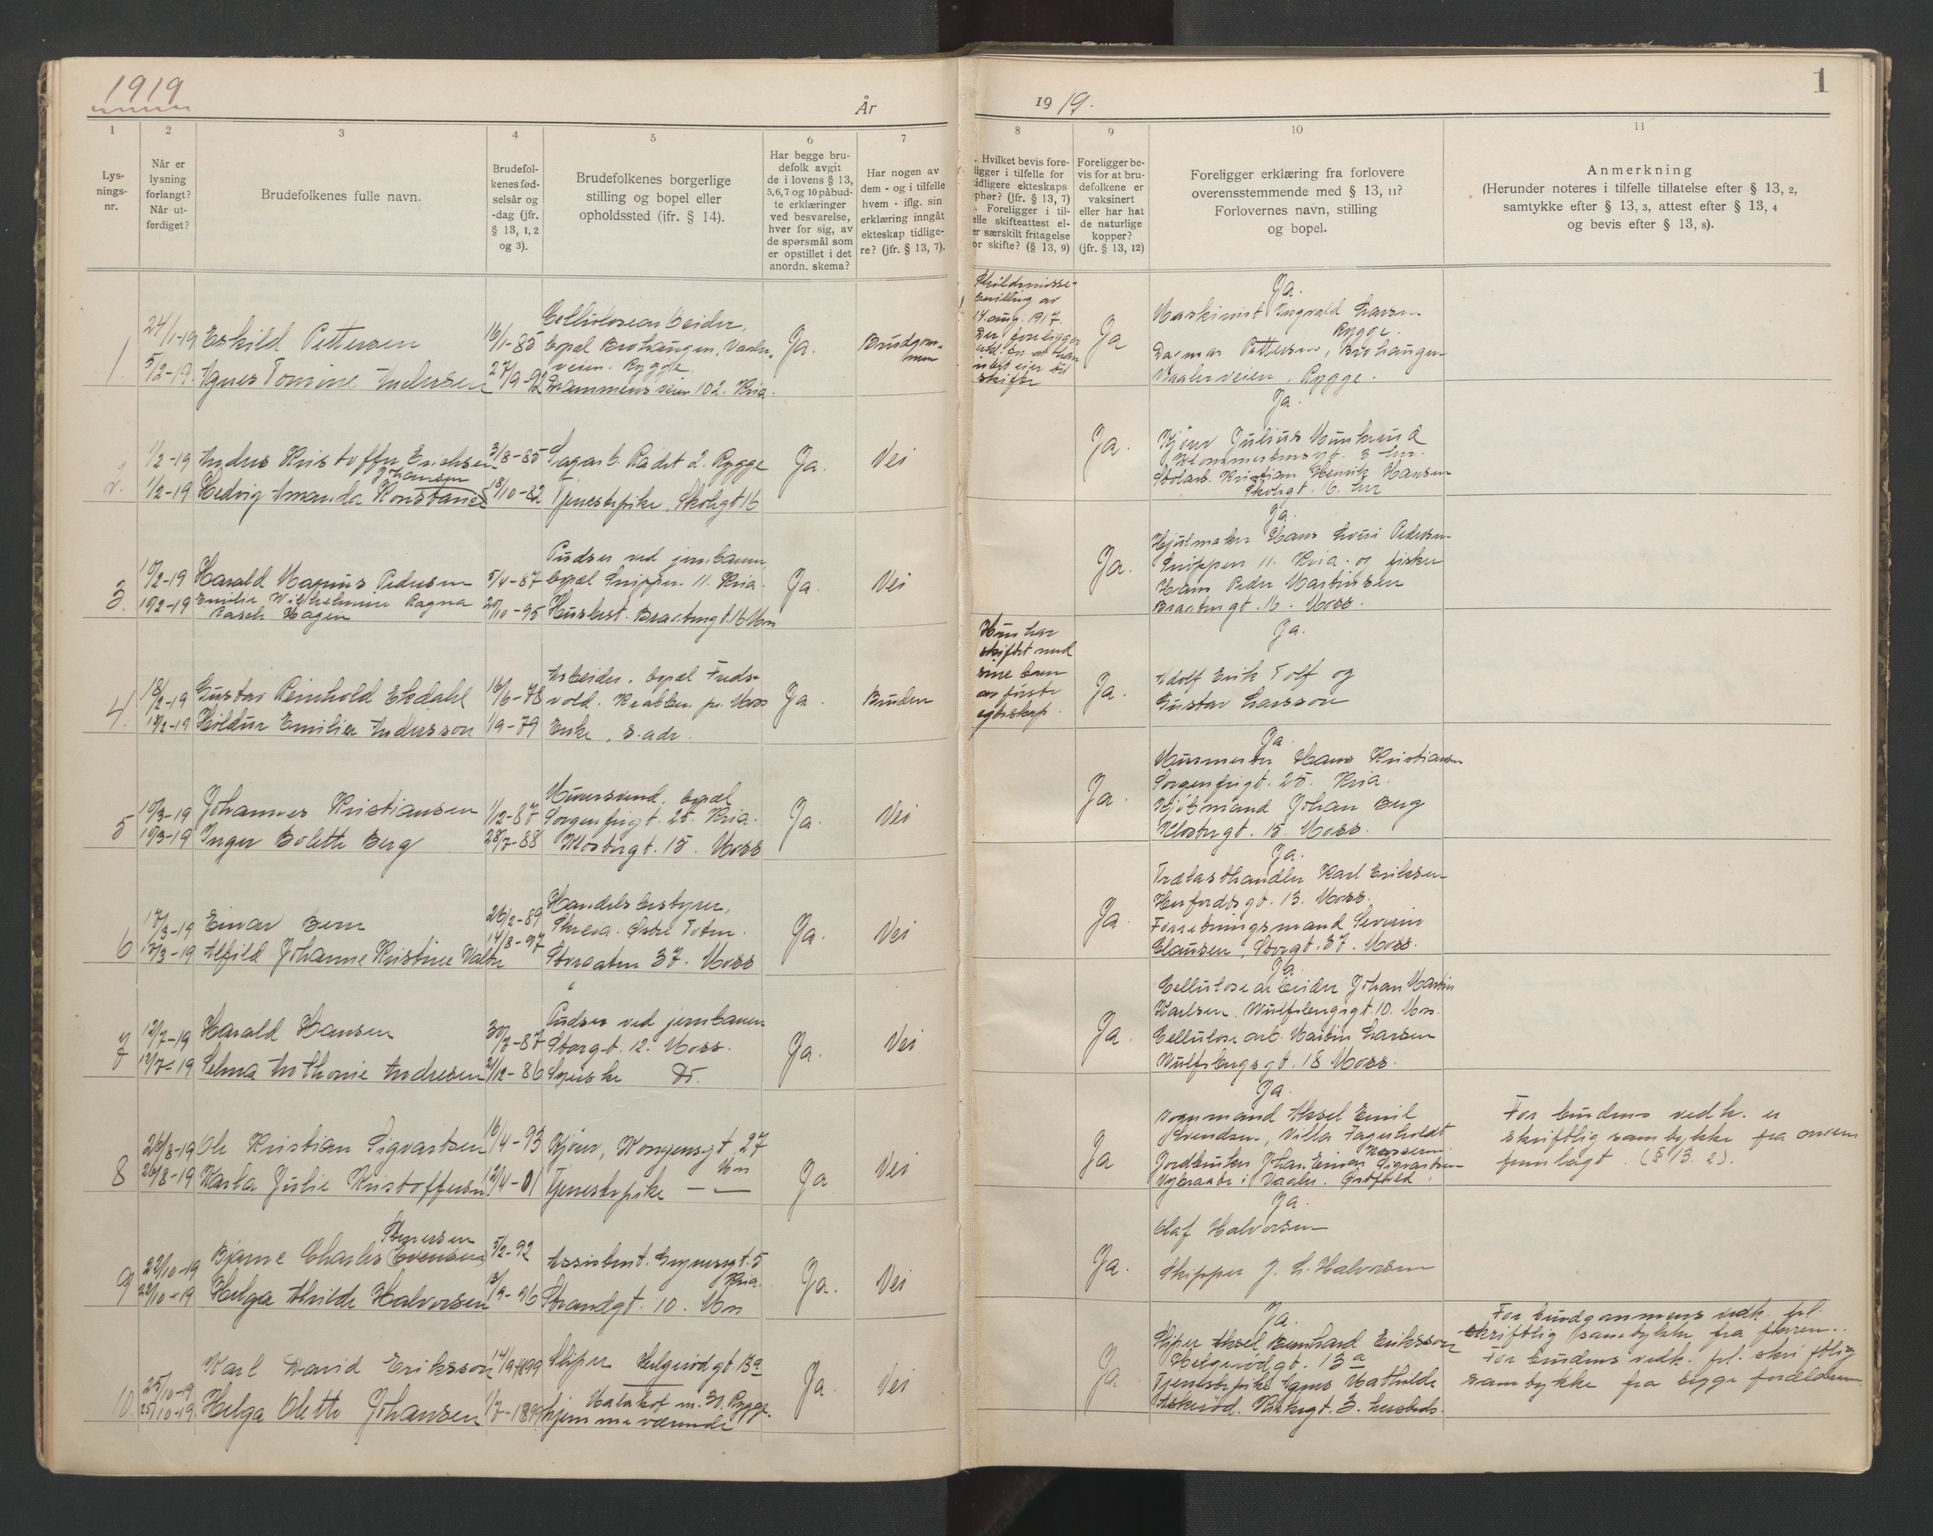 1919
År
1
2
3
4
5
6
7
Lys-
nings-
nr.
Når er
lysning
forlangt?
Når ut-
ferdiget?
Brudefolkenes fulle navn.
Brudefol-
kenes fød-
selsår og
-dag (jfr.
§ 13, 1, 2
og 3).
Brudefolkenes borgerlige
stilling og bopel eller
opholdssted (jfr. § 14).
Har begge bru-
defolk avgit
de i lovens § 13,
5, 6, 7 og 10 påbud-
te erklæringer
ved besvarelse,
hver for sig, av
de spørsmål som
er opstillet i det
anordn. skema?
Har nogen av
dem - og i tilfelle
hvem - iflg. sin
erklæring inngått
ekteskap tidlige-
re? (jfr. § 13, 7).
1
24/1-19
5/2-19
Eskild Pettersen
Agnes Tomine Andersen
16/1-85
27/9-92
Cellulosearbeider,
bopæl Brohaugen, Vaaler-
veien. Rygge
Drammensveien 102. Kria.
Ja.
Brudgom-
men
2.
1/2-19
1/2-19
Anders Kristoffer Erichsen
Johansen
Hedvig Amanda Konstanse
3/8-85
18/10-82
Sagarb. Radet 2. Rygge
Tjenestepike, Skolegt 16
Ja.
Nei
3.
10/2-19
10/2-19
Harald Magnus Pedersen
Emilie Wilhelmine Ragna
Rasch Hagen
5/4-87
20/10-95
Pudser ved jernbanen
bopæl Snippen 11. Kria.
Husbest. Braatengt. 16 Mss
Ja.
Nei
4.
18/2-19
18/2-19
Gustav Reinhold Ekdahl
Hildur Emilia Andersson
16/6-78
1/9-79
Arbeider. bopæl Freds-
vold. Krabben pr. Moss
Enke, s. adr.
Ja.
Bruden
5
10/3-19
10/3-19
Johannes Kristiansen
Inger Bolette Berg
1/12-87
28/7-88
Murersvend, bopæl
Sorgenfrigt. 25. Kria.
Klostergt. 15. Moss
Ja.
Nei
6
17/3-19
17/3-19
Einar Bern
Alfild Johanne Kristine Valtre
26/2-89
14/8-97
Handelsbestyrer,
Skreia. Østre Toten.
Storgaten 37. Moss
Ja.
Nei
7
12/7-19
12/7-19
Harald Hansen
Selma Anthonie Andresen
30/7-87
21/12-86
Pudser ved jernbanen
Storgt. 12. Moss.
Syerske Do.
Ja.
Nei
8
26/8-19
26/8-19
Ole Kristian Sigvartsen
Karla Julie Kristoffersen
16/4-93
12/4-01
Kjører, Kongensgt. 27
Mss
Tjenestepike — —
Ja
Nei
9
22/10-19
22/10-19
Bjarne Charles Evensen
Helga Alvilde Halvorsen
5/2-92
13/9-96
Assistent. Grynersgt. 5
Kria.
Strandgt. 10. Mss
Ja.
Nei
10.
25/10-19
25/10-19
Karl David Eriksson
Helga Olette Johansen
14/9-1899
1/7-1899
Skiper Helgerødgt 13a
Malakof m. 30. Rygge.
hjemmeværende
Ja.
Nei
1
19 19.
8
9
10
11
Hvilket bevis fore-
ligger i tilfelle for
tidligere ekteskaps
ophør? (jfr. § 13, 7)
Foreligger i til-
felle skifteattest el-
er særskilt fritagelse
or skifte? (§ 13, 9)
Foreligger be-
vis for at bru-
defolkene er
vaksinert
eller har hat
de naturlige
kopper?
(jfr. § 13, 12)
Foreligger erklæring fra forlovere
overensstemmende med § 13, 11?
Forlovernes navn, stilling
og bopel.
Anmerkning
(Herunder noteres i tilfelle tillatelse efter § 13, 2,
samtykke efter § 13, 3, attest efter § 13, 4
og bevis efter § 13, 8).
Skilsmisse-
bevilling av
14. aug. 1917.
Der foreligger
skifte
Ja
Ja.
Maskinist Ingvald Larsen
Rygge.
Dagmar Pettersen, Brohaugen
Vaalerveien, Rygge.
Ja.
Ja.
Kjører Julius Munkerud
Stolarb. Kristian Henrik Hansen
Skolegt. 16. her
Ja.
Ja
Hjulmaker Hans Pedersen
Snippen 11. Kria. og fisker
Hans Peder Martinsen
Braatengt. 16. Moss.
Hun har
skiftet med
sine barn
av første
egteskap.
Ja.
Ja.
Adolf Erik Tolf og
Gustav Larsson
Ja.
Ja.
Murmester Hans Kristiansen
Sorgenfrigt. 25. Kria.
Kjøbmand Johan Berg
Klostergt. 15. Moss.
Ja.
Ja.
Trælasthandler Karl Eriksen
Herfordsgt. 13. Moss.
Forretningsmand Severin
Clausen, Storgt. 37. Moss.
Ja.
Ja.
Cellulosearbeider Johan Martin
Karlsen. Wulfsbergsgt. 10. Mss.
Cellulosearb. Martin Larsen
Wulfsbergsgt. 18 Moss.
Ja
Ja.
Vognmand Aksel Emil
Svendsen, Villa Fagerholdt
Jordbruker Johan Einar Sigvartsen
i Vaaler. Østfold.
For brudens vedk. er
skriftlig samtykke fra moren
fremlagt. (§ 13. 2).
Ja.
Ja
Olaf Halvorsen
Skipper J. L. Halvorsen
Ja
Ja.
Skiper Aksel Bernhard Eriksson
Helgerødgt. 13a
Tjenestepike Agnes Mathilde
Askerød. Kirkegt. 3. hersteds.
For brudgommens vedk. frl.
skriftlig samtykke fra faren.
For brudens vedk. frl. skriftlig
samtykke fra begge forældrene